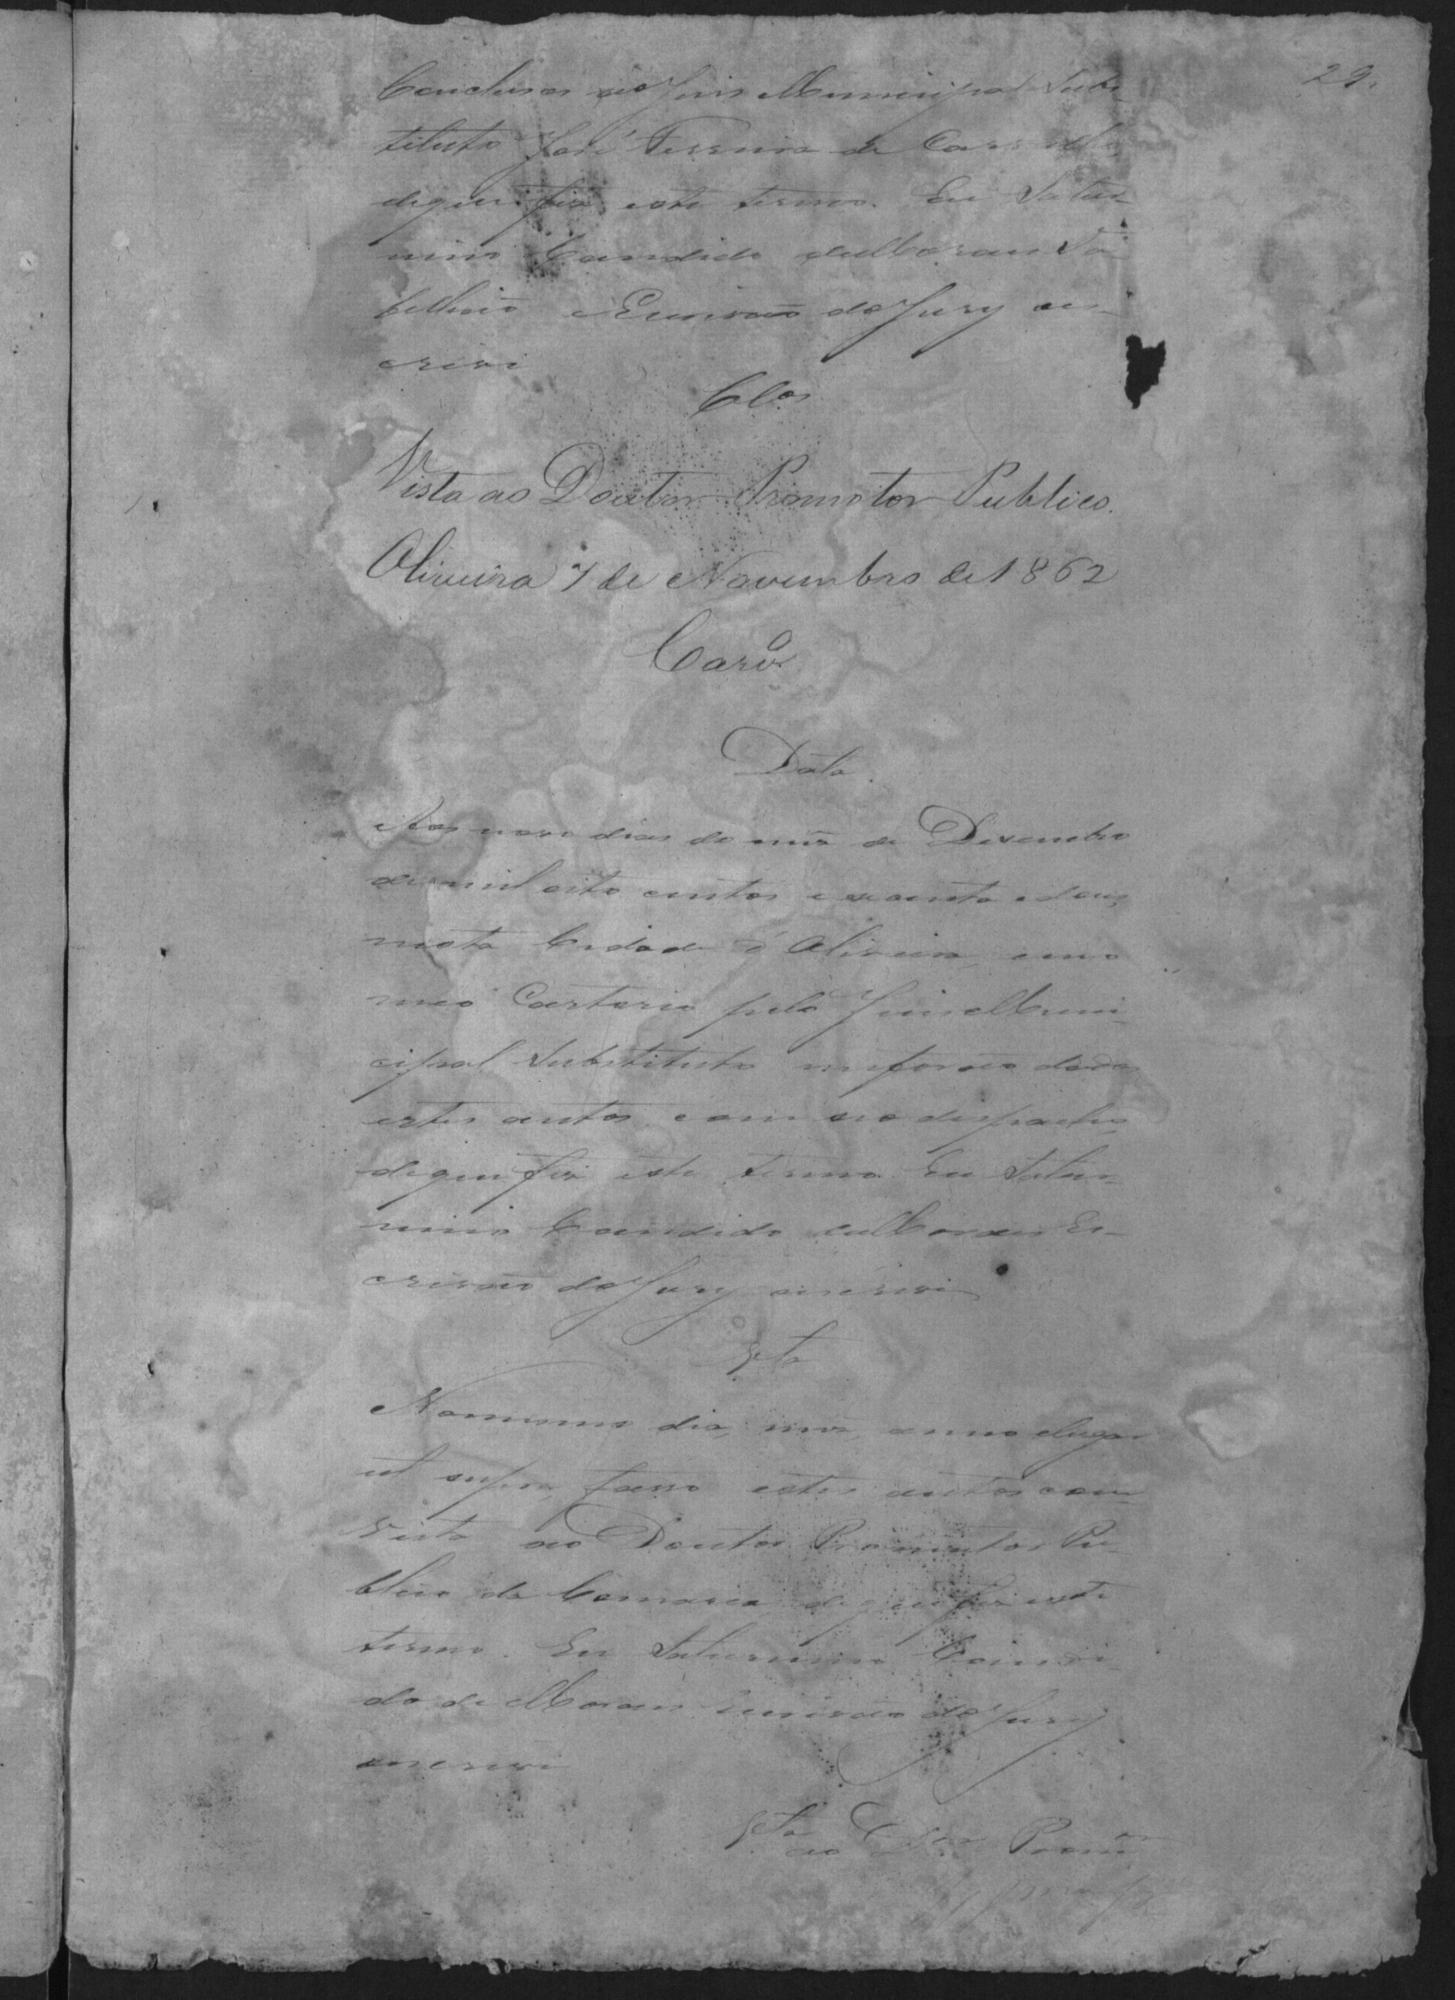 29.
Conclusos ao Juis Municipal Subs-
tituto José Ferreira de Carvalho
deque fiz este termo. Eu Satur-
nino Candido de Moraes Ta-
bellião e Escrivão do Jury es-
crivi
Clos
Vista ao Doutor Promotor Publico.
Oliveira 7 de Novembro de 1862
Carvo
Data.
Aos nove dias do mes de Desembro
de mil oito centos e secenta e dous
nesta Cidade d'Oliveira, em o
meo Cartorio pelo Juis Muni-
cipal Substituto me forão dados
estes autos com seo despacho
deque fiz este termo. Eu Satur-
nino Candido de Moraes Es-
crivão do Jury escrevi
Vta
No mesmo dia, mes, anno e lugar
ut supra, faço estes autos com
Vista ao Doutor Promotor Pu-
blico da Comarca, de que fiz este
termo. Eu Saturnino Candi-
do de Moraes Escrivão do Jury
escrevi
Vta ao Dor Prom